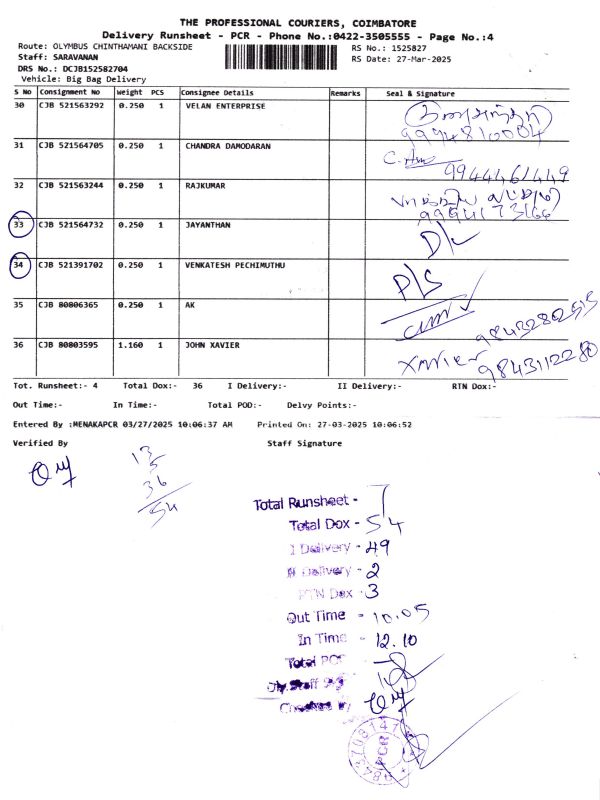 THE PROFESSIONAL COURIERS, COIMBATORE
Delivery Runsheet - PCR - Phone No.:0422-3505555 - Page No.:4
Route: OLYMBUS CHINTHAMANI BACKSIDE
RS No.: 1525827
Staff: SARAVANAN
RS Date: 27-Mar-2025
DRS No.: DCJB152582704
Vehicle: Big Bag Delivery
S No Consignment No Weight PCS Consignee Details Remarks Seal & Signature
30 CJB 521563292 0.250 1 VELAN ENTERPRISE
9994810004
31 CJB 521564705 0.250 1 CHANDRA DAMODARAN
9944461449
32 CJB 521563244 0.250 1 RAJKUMAR
33 CJB 521564732 0.250 1 JAYANTHAN D/L
34 CJB 521391702 0.250 1 VENKATESH PECHIMUTHU P/S
35 CJB 80806365 0.250 1 AK
36 CJB 80803595 1.160 1 JOHN XAVIER Xavier 9843112280
Tot. Runsheet:- 4 Total Dox:- 36 I Delivery:- II Delivery:- RTN Dox:-
Out Time:- In Time:- Total POD:- Delvy Points:-
Entered By :MENAKAPCR 03/27/2025 10:06:37 AM Printed On: 27-03-2025 10:06:52
Verified By Staff Signature
13
5
36
54
Total Runsheet -
Total Dox - 54
I Delivery - 49
II Delivery - 2
RTN Dox - 3
Out Time - 10.05
In Time - 12.10
Total PCS
Dly.Staff Sig
Checked by
PCR